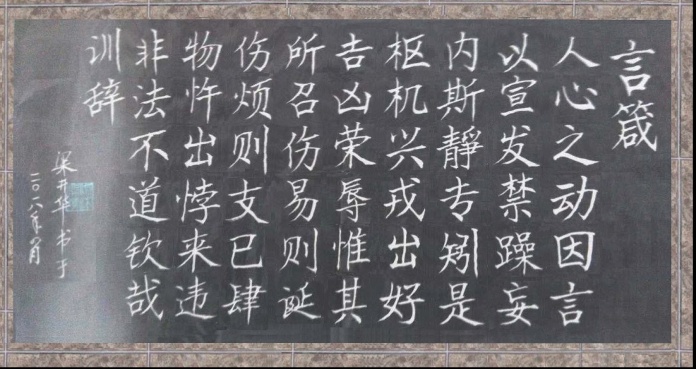 言箴
人心之动因言
以宣发禁躁妄
内斯靜专矧是
枢机兴戎出好
吉凶荣辱惟其
所召伤易则诞
伤烦则支已肆
物忤出悖来违
非法不道钦哉
训辞
梁开华书于
二〇一八年月